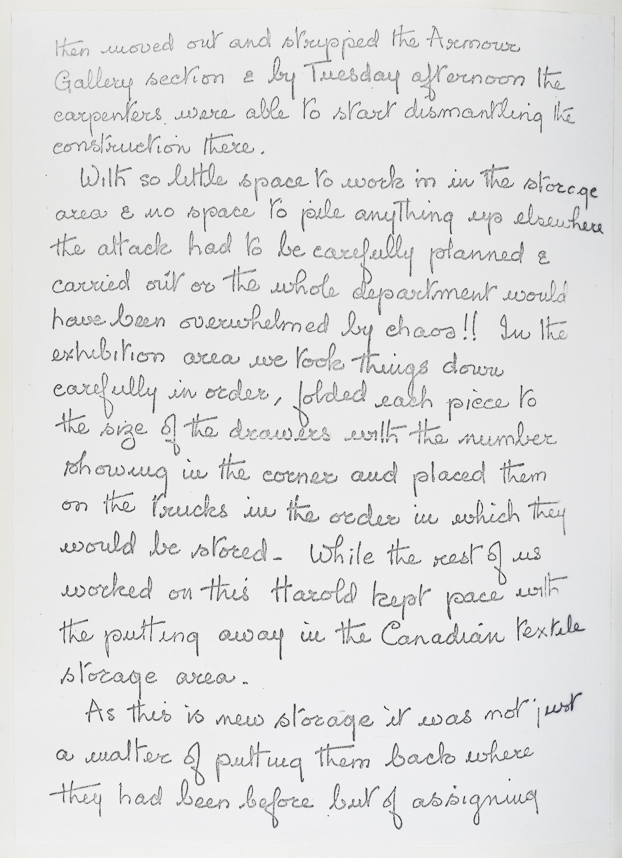 then moved out and stripped the Armour
Gallery section & by Tuesday afternoon the
carpenters were able to start dismantling the
construction there.
With so little space to work in in the storage
area & no space to pile anything up elsewhere
the attack had to be carefully planned &
carried out or the whole department would
have been overwhelmed by chaos!! In the
exhibition area we took things down
carefully in order, folded each piece to
the size of the drawers with the number
showing in the corner and placed them
on the trucks in the order in which they
would be stored - While the rest of us
worked on this Harold kept pace with
the putting away in the Canadian textile
storage area.
As this is new storage it was not just
a matter of putting them back where
they had been before but of assigning